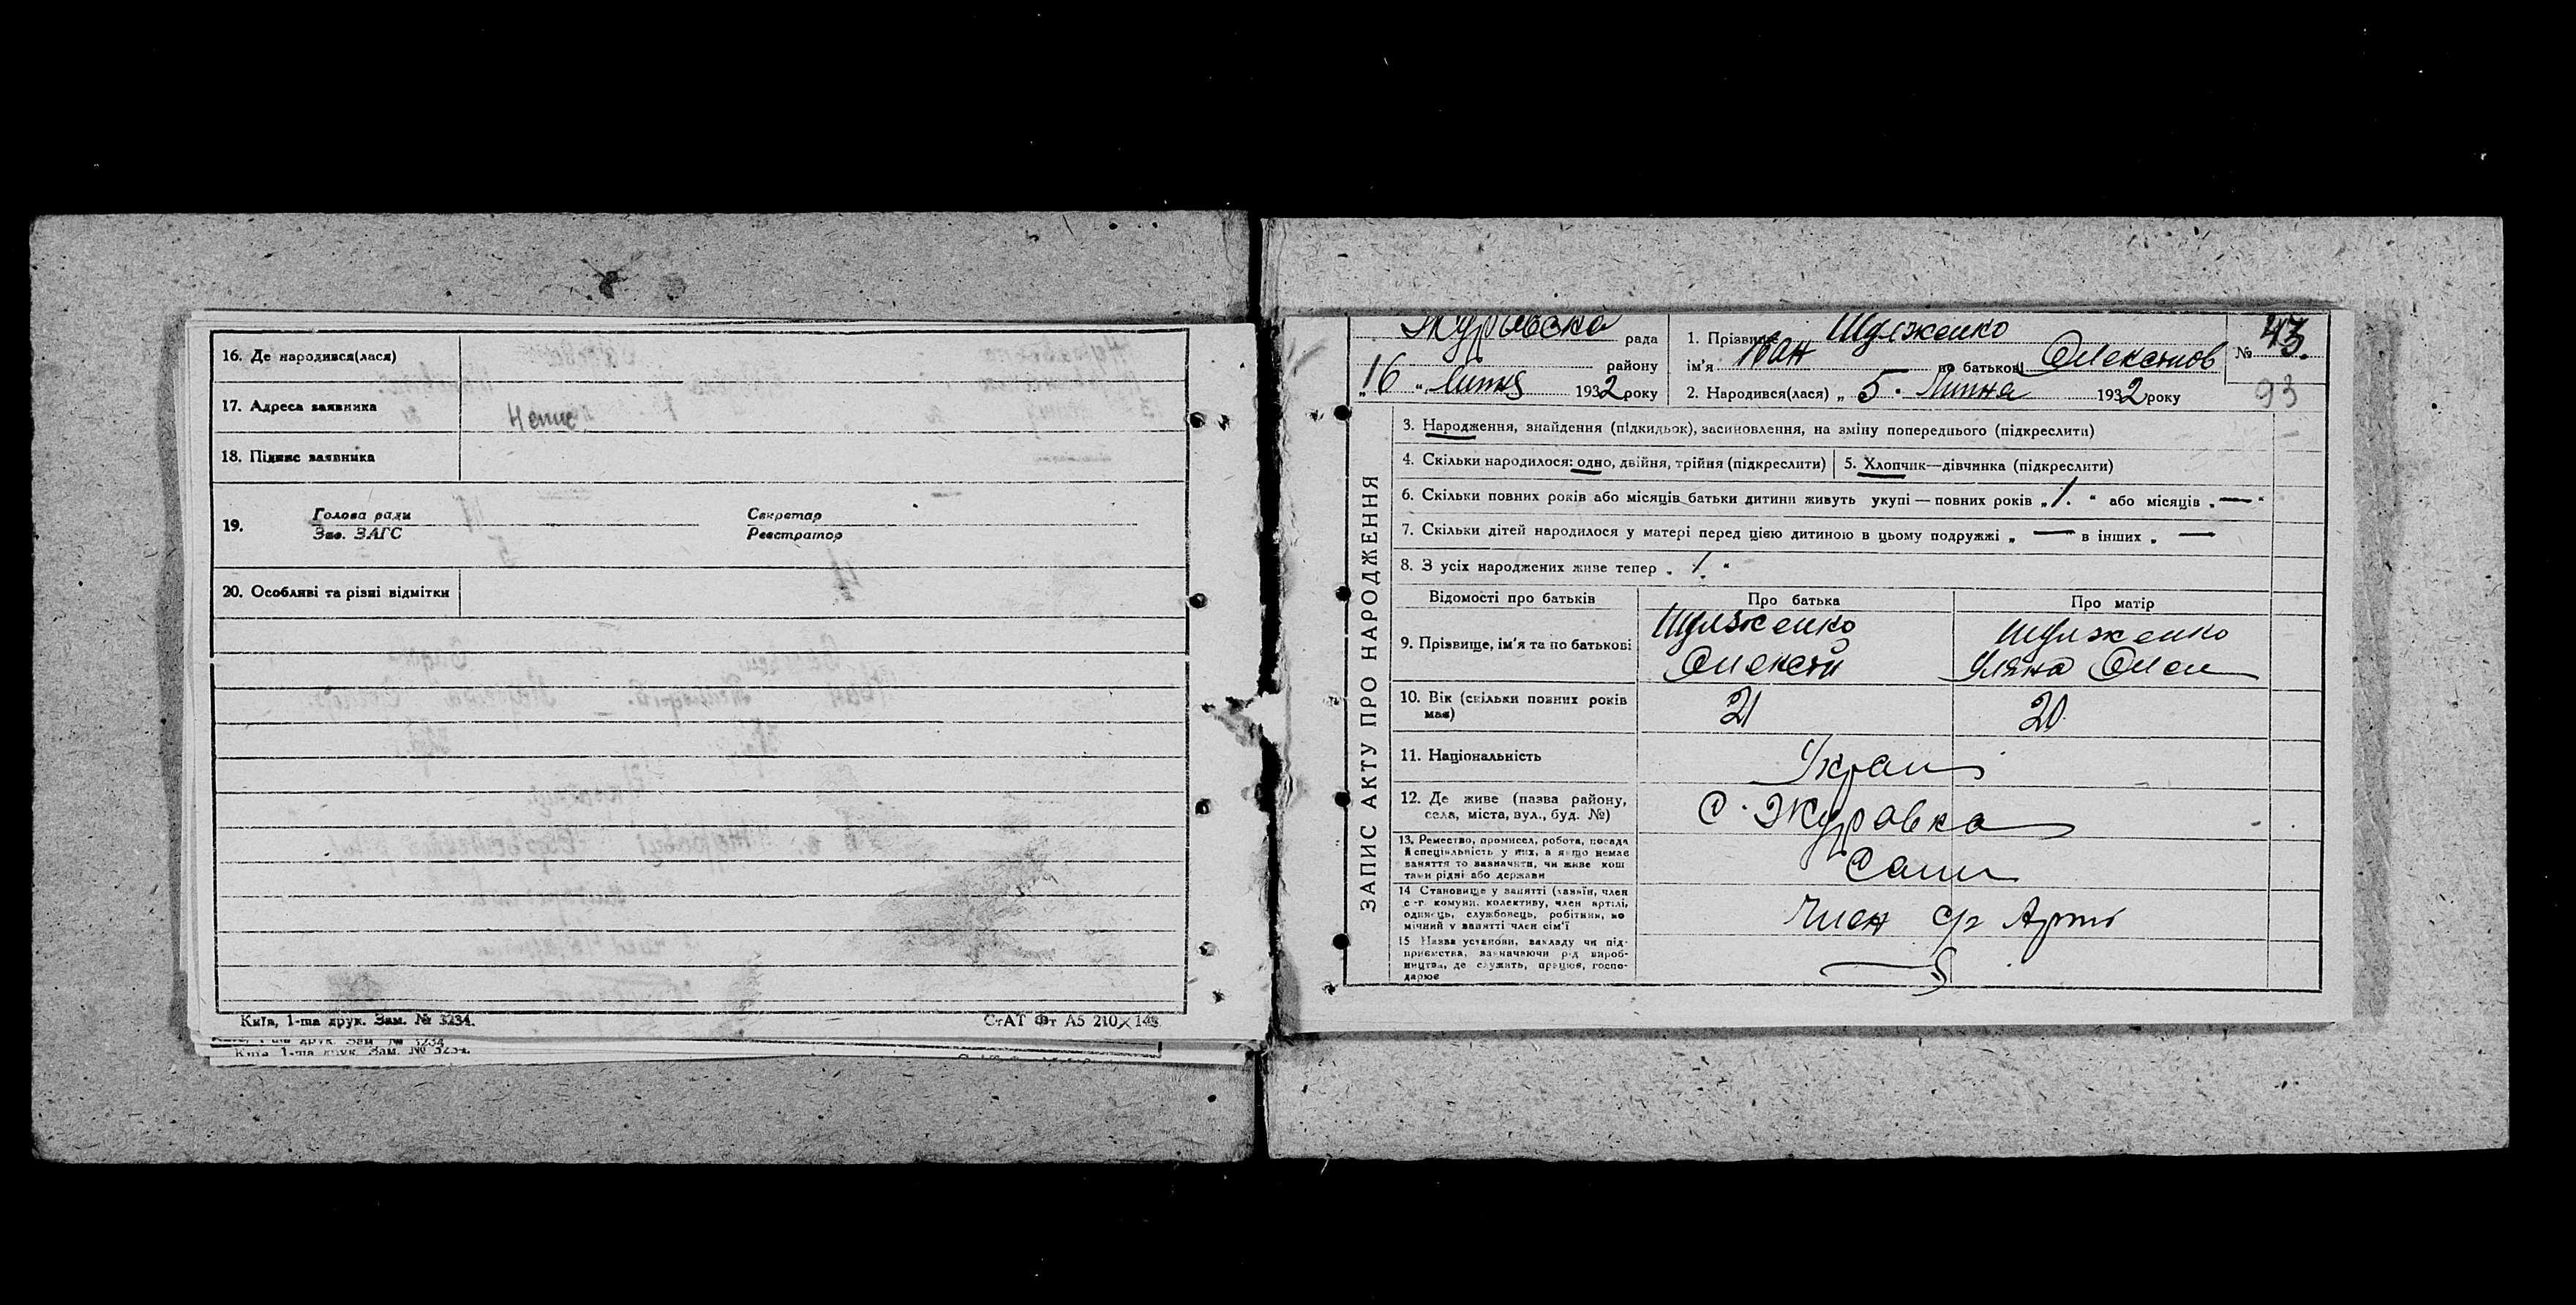 16. Де народився(лася)
17. Адреса заявника
18. Підпис заявника
19. Голова ради Секретар
Зав. ЗАГС Реєстратор
20. Особливі та різні відмітки
Київ, 1-ша друк. Зам. № 3234.
СтАТ Фт А5 210×148
Київ 1-ша друк. Зам. № 3234.
рада
району
„16“ Липня 1932 року
1. Прізвище
ім'я Іван по батькові
2. Народився(лася) „5. Липня 1932 року
№ 43.
93
ЗАПИС АКТУ ПРО НАРОДЖЕННЯ
3. Народження, знайдення (підкидьок), засиновлення, на зміну попереднього (підкреслити)
4. Скільки народилося: одно, двійня, трійня (підкреслити)
5. Хлопчик—дівчинка (підкреслити)
6. Скільки повних років або місяців батьки дитини живуть укупі — повних років „1.“ або місяців „—“
7. Скільки дітей народилося у матері перед цією дитиною в цьому подружжі „ — в інших „ —
8. З усіх народжених живе тепер „1.“
Відомості про батьків Про батька Про матір
9. Прізвище, ім'я та по батькові
Уляна Олек
10. Вік (скільки повних років має) 21 20
11. Національність Украі
12. Де живе (назва району, села, міста, вул., буд. №) с. Журавка
13. Ремество, промисел, робота, посада
й спеціяльність у них, а якщо немає
заняття то зазначити, чи живе кош
тами рідні або держави
14 Становище у занятті (хазяїн, член
с.-г. комуни, колективу, член артілі,
одинець, службовець, робітник, по
мічний у занятті член сім'ї
Член с/г Арті
15 Назва установи, закладу чи під-
приємства, зазначаючи рід вироб-
ництва, де служить, працює, госпо-
дарює